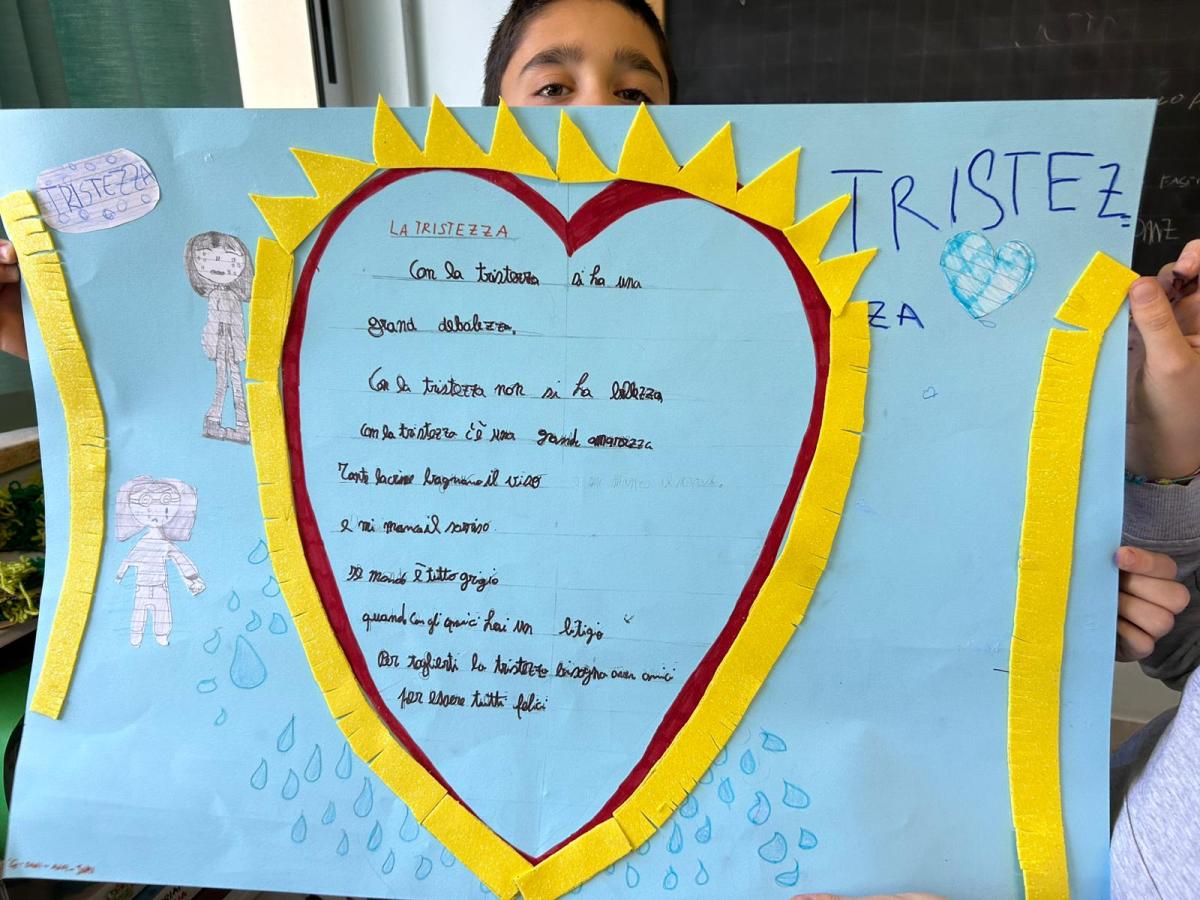 TRISTEZZA
TRISTEZ
ZA
LA TRISTEZZA
Con la tristezza si ha una
grand debolezza,
Con la tristezza non si ha bellezza,
con la tristezza c'è una grande amarezza
Tante lacrime bagnano il viso
e mi manca il sorriso.
Il mondo è tutto grigio
quando con gli amici hai un litigio
Per toglierti la tristezza bisogna aver amici
per essere tutti felici